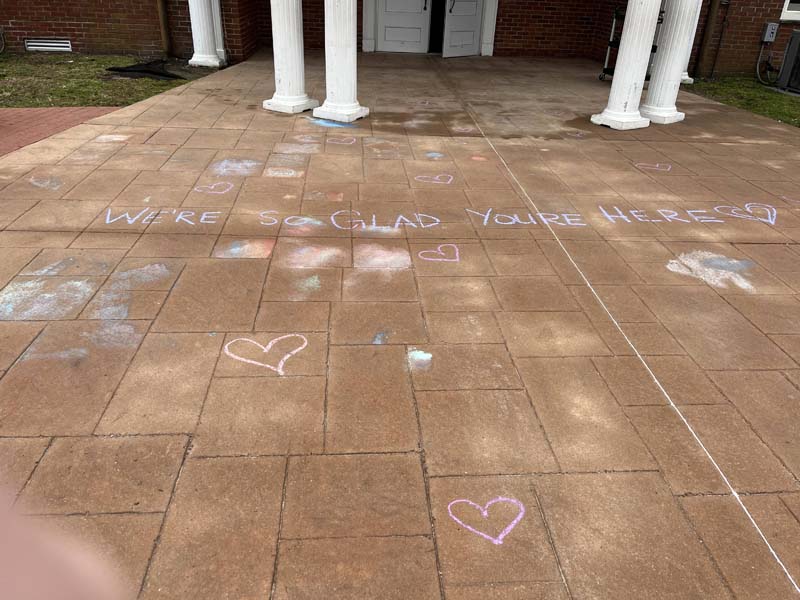 We're So Glad You're Here